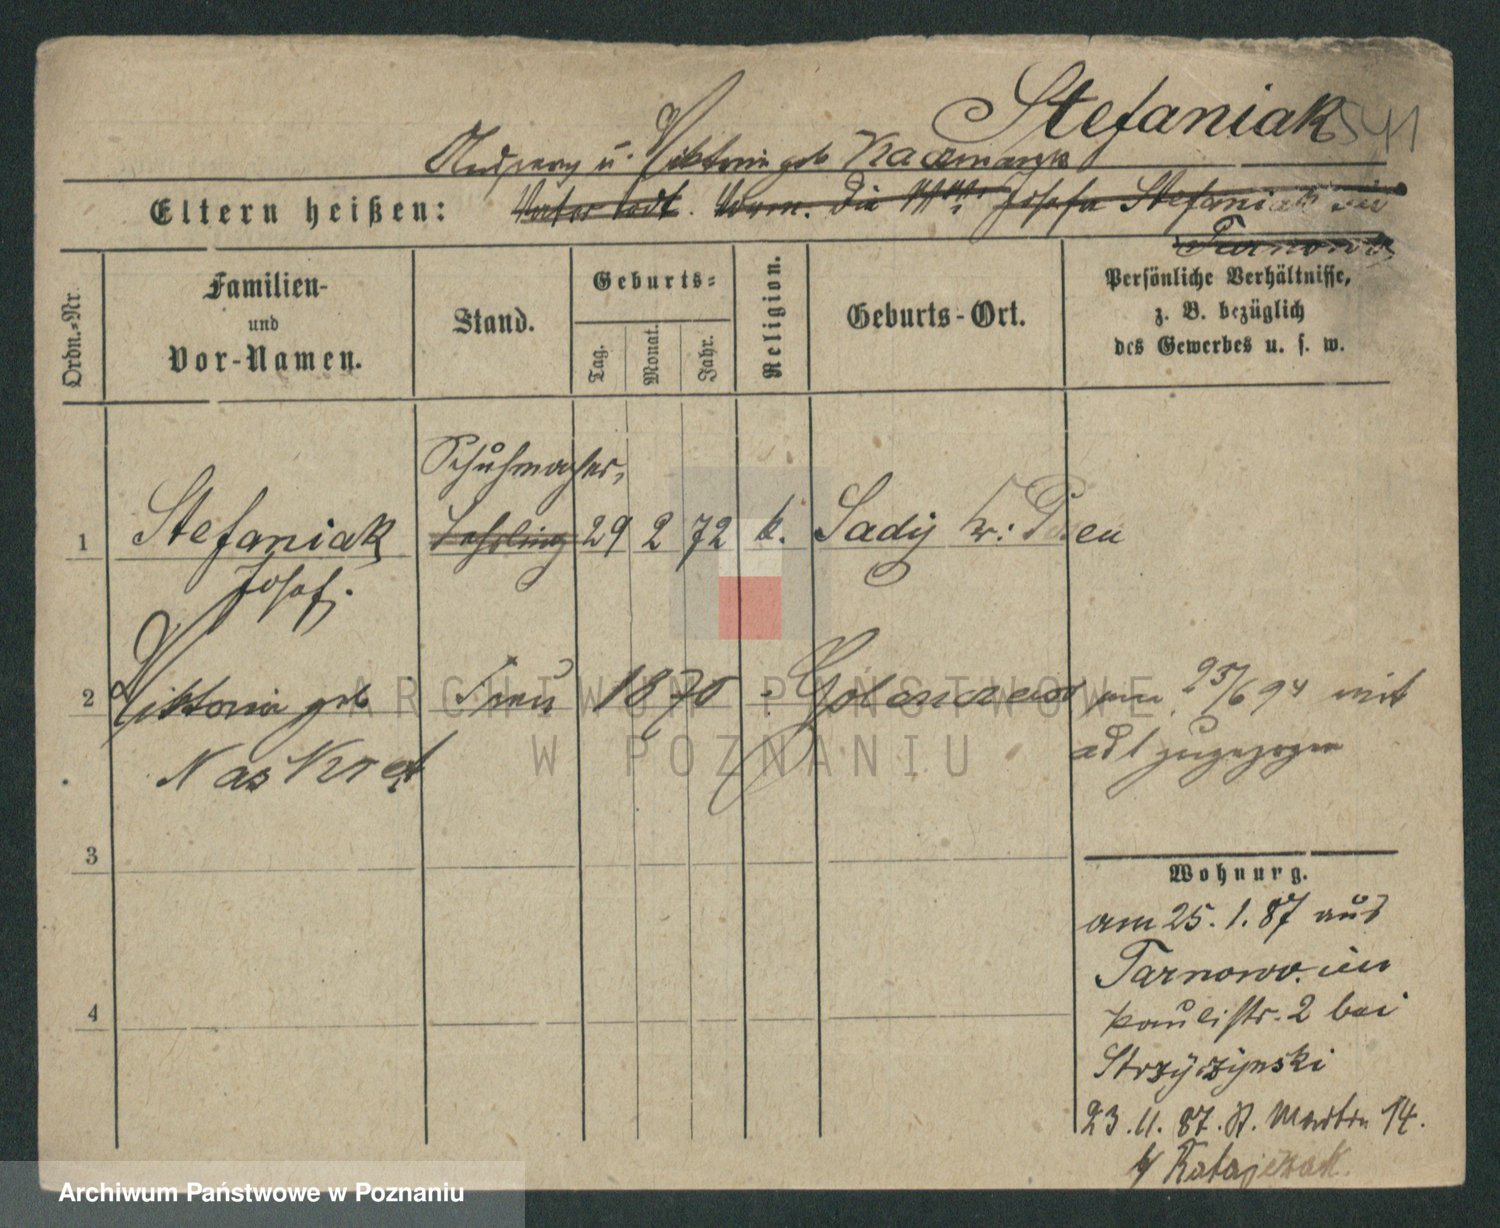 Stefaniak 541
u. Viktoria geb Kaczmarek
Eltern heißen: Vater todt. Vorm. die Josefa Stefaniak in
Tarnowo
Ordn.=Nr.
Familien-
und
Vor-Namen.
Stand.
Geburts=
Tag.
Monat.
Jahr.
Religion.
Geburts-Ort.
Persönliche Verhältnisse,
z. B. bezüglich
des Gewerbes u. s. w.
Schuhmacher,
1 Stefaniak Lehrling 29 2 72 k. Sady Kr: Posen
Josef.
2 Viktoria geb Frau 1870 Golenczewo am 25/6 94 mit
Naskret adl zugezogen
3
4
Wohnung.
am 25. 1. 87 aus
Tarnowo. in
Paulistr. 2 bei
Strzyżynski
23. 11. 87. St. Martin 14.
b/ Ratajczak.
ARCHIWUM PAŃSTWOWE
W POZNANIU
Archiwum Państwowe w Poznaniu